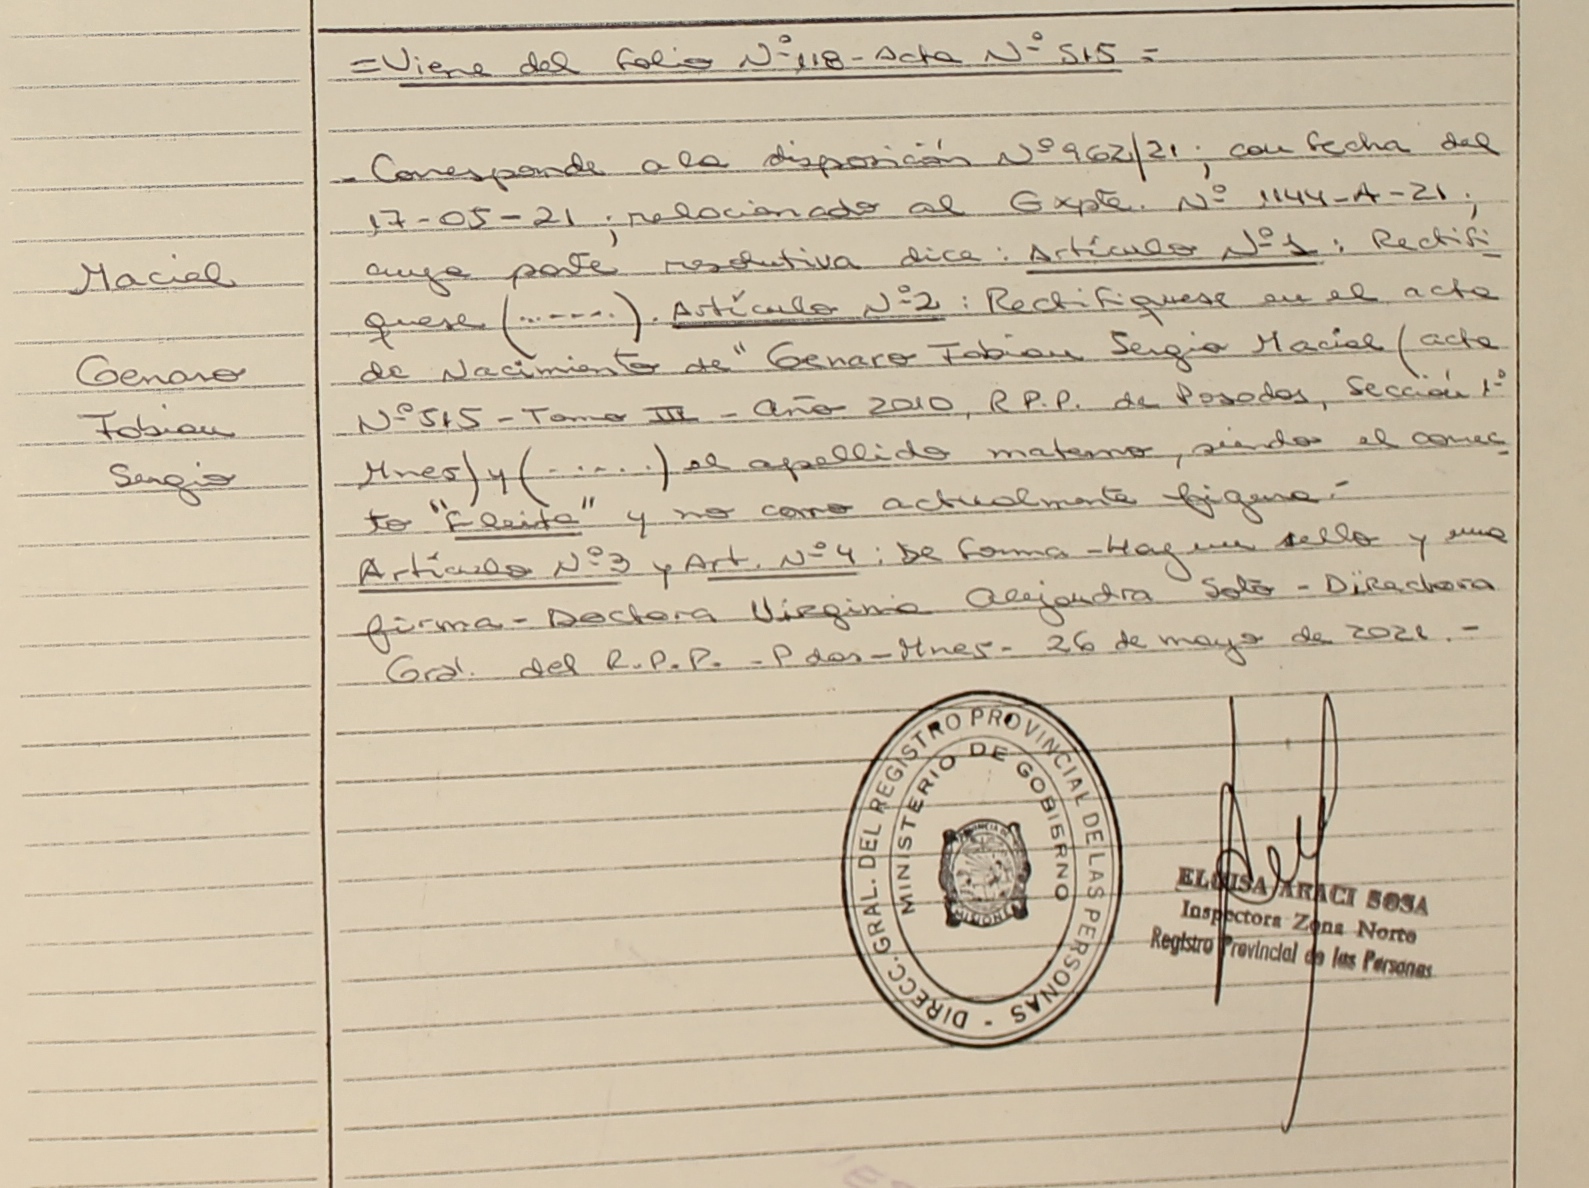 =Viene del Folio Nº 118-Acta Nº 515=
- Corresponde a la disposición Nº 962/21; con fecha del
17-05-21; relacionado al Expte. Nº 1144-A-21;
cuya parte resolutiva dice: Artículo Nº 1: Rectifí
quese (.......). Artículo Nº 2: Rectifíquese en el acta
de Nacimiento de "Genaro Fabian Sergio Maciel (acta
Nº 515 - Tomo III - Año 2010, R.P.P. de Posadas, Sección 1º
Mnes) y (......) el apellido materno, siendo el correc
to "Fleita" y no como actualmente figura.-
Artículo Nº 3 y Art. Nº 4: De Forma - Hay un sello y una
firma - Doctora Virginia Alejandra Soto - Directora
Gral. del R.P.P. - Pdas - Mnes - 26 de mayo de 2021.-
Maciel
Genaro
Fabian
Sergio
DIRECC. GRAL. DEL REGISTRO PROVINCIAL DE LAS PERSONAS -
MINISTERIO DE GOBIERNO
PROVINCIA DE
MISIONES
ELOISA ARACI SOSA
Inspectora Zona Norte
Registro Provincial de las Personas